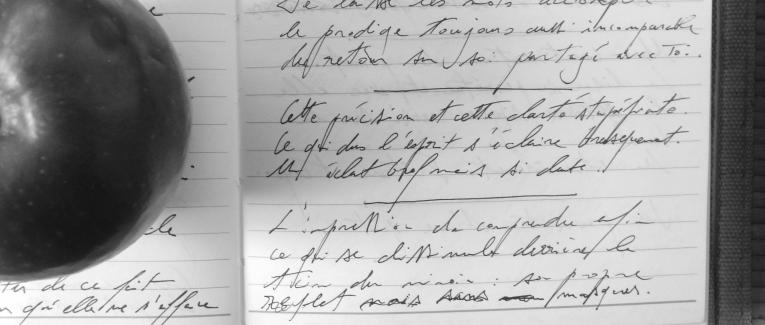 le
ter de ce fait
qu'elle ne s'efface
Je laisse les mots
le prodige toujours aussi incomparable
du retour sur soi partagé avec toi.
Cette précision et cette clarté stupéfiante.
Ce qui dans l'esprit s'éclaire brusquement.
Un éclat bref mais si
L'impression de comprendre enfin
ce qui se dissimule derrière le
du miroir : son propre
reflet mais sans masques.